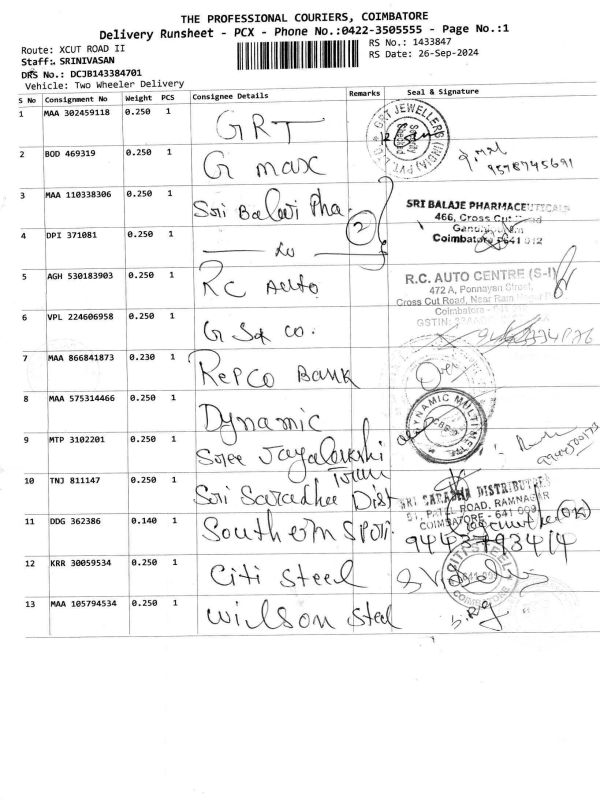 THE PROFESSIONAL COURIERS, COIMBATORE
Delivery Runsheet - PCX - Phone No.:0422-3505555 - Page No.:1
Route: XCUT ROAD II
RS No.: 1433847
Staff: SRINIVASAN
RS Date: 26-Sep-2024
DRS No.: DCJB143384701
Vehicle: Two Wheeler Delivery
S No Consignment No Weight PCS Consignee Details Remarks Seal & Signature
1 MAA 302459118 0.250 1 GRT GRT JEWELLERS (INDIA) PVT. LTD.
2 BOD 469319 0.250 1 G max 9578745691
3 MAA 110338306 0.250 1 Sri Balaji Pha. 2 SRI BALAJE PHARMACEUTICALS
466, Cross Cut Road
4 DPI 371081 0.250 1
Coimbatore 641 012
5 AGH 530183903 0.250 1 RC Auto R.C. AUTO CENTRE (S-I)
472 A, Ponnayan Street,
Cross Cut Road, Near Ram
Coimbatore
GSTIN:
6 VPL 224606958 0.250 1 G Sq Co.
7 MAA 866841873 0.230 1 Repco Bank
8 MAA 575314466 0.250 1 Dynamic DYNAMIC MULTI
9 MTP 3102201 0.250 1 Sree Jayalakshi
10 TNJ 811147 0.250 1 Sri Saradha Dist SRI SARADHA DISTRIBUTRES
51, PATEL ROAD, RAMNAGAR
COIMBATORE - 641 009
11 DDG 362386 0.140 1 Southern Spori. 9443793414
12 KRR 30059534 0.250 1 Citi Steel CITI STEEL COIMBATORE
13 MAA 105794534 0.250 1 Wilson Steel